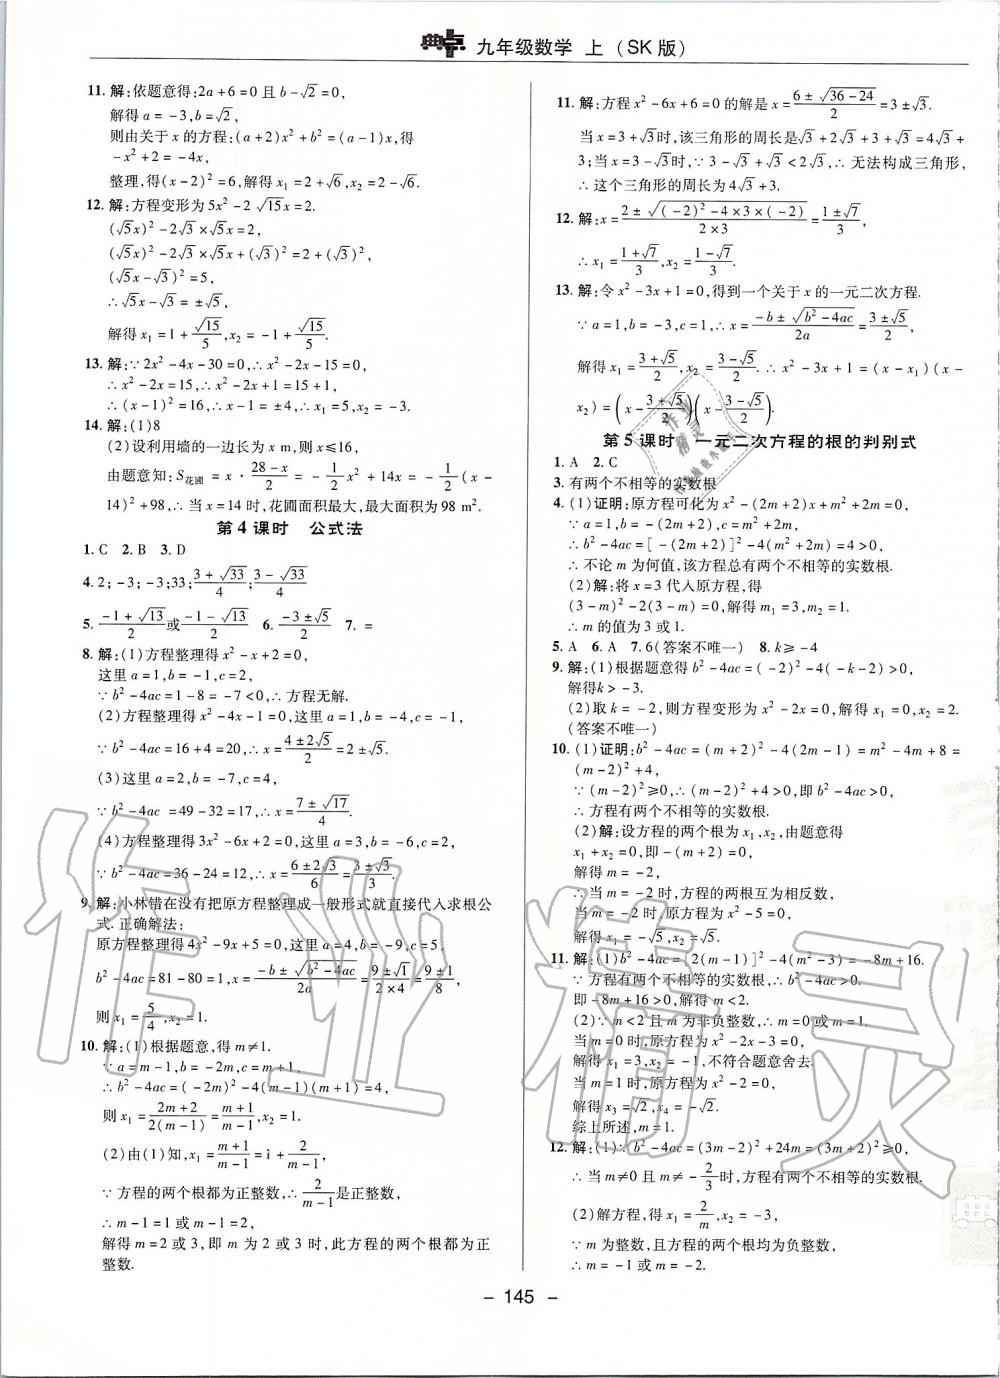 典点 九年级数学 上 (SK 版)
11. 解:依题意得:2a+6=0 且 b-√2=0,
解得 a=-3,b=√2,
则由关于 x 的方程:(a+2)x²+b²=(a-1)x,得
-x²+2=-4x,
整理,得(x-2)²=6,解得 x₁=2+√6,x₂=2-√6.
12. 解:方程变形为 5x²-2√15x=2.
(√5x)²-2√3×√5x=2,
(√5x)²-2√3×√5x+(√3)²=2+(√3)²,
(√5x-√3)²=5,
∴√5x-√3=±√5,
解得 x₁=1+√15/5,x₂=-1+√15/5.
13. 解:∵2x²-4x-30=0,∴x²-2x-15=0,
∴x²-2x=15,∴x²-2x+1=15+1,
∴(x-1)²=16,∴x-1=±4,∴x₁=5,x₂=-3.
14. 解:(1)8
(2)设利用墙的一边长为 x m,则 x≤16,
由题意知:S花圃=x·(28-x)/2=-1/2x²+14x=-1/2(x-
14)²+98,∴当 x=14 时,花圃面积最大,最大面积为 98 m².
第 4 课时 公式法
1. C 2. B 3. D
4. 2;-3;-3;33;(3+√33)/4;(3-√33)/4
5. (-1+√13)/2或(-1-√13)/2 6. (-3±√5)/2 7. =
8. 解:(1)方程整理得 x²-x+2=0,
这里 a=1,b=-1,c=2,
∵b²-4ac=1-8=-7<0,∴方程无解.
(2)方程整理得 x²-4x-1=0,这里 a=1,b=-4,c=-1,
∵b²-4ac=16+4=20,∴x=(4±2√5)/2=2±√5.
(3)这里 a=2,b=-7,c=4,
∵b²-4ac=49-32=17,∴x=(7±√17)/4.
(4)方程整理得 3x²-6x+2=0,这里 a=3,b=-6,c=2,
∵b²-4ac=36-24=12,∴x=(6±2√3)/6=(3±√3)/3.
9. 解:小林错在没有把原方程整理成一般形式就直接代入求根公
式.正确解法:
原方程整理得 4x²-9x+5=0,这里 a=4,b=-9,c=5.
b²-4ac=81-80=1,x=(-b±√(b²-4ac))/2a=(9±√1)/(2×4)=(9±1)/8,
则 x₁=5/4,x₂=1.
10. 解:(1)根据题意,得 m≠1.
∵a=m-1,b=-2m,c=m+1,
∴b²-4ac=(-2m)²-4(m-1)(m+1)=4,
则 x₁=(2m+2)/(2(m-1))=(m+1)/(m-1),x₂=1.
(2)由(1)知,x₁=(m+1)/(m-1)=1+2/(m-1),
∵方程的两个根都为正整数,∴2/(m-1)是正整数,
∴m-1=1 或 m-1=2,
解得 m=2 或 3,即 m 为 2 或 3 时,此方程的两个根都为正
整数.
11. 解:方程 x²-6x+6=0 的解是 x=(6±√(36-24))/2=3±√3.
当 x=3+√3时,该三角形的周长是√3+2√3+3+√3=4√3+
3;当 x=3-√3时,∵3-√3+√3<2√3,∴无法构成三角形,
∴这个三角形的周长为 4√3+3.
12. 解:x=(2±√((-2)²-4×3×(-2)))/(2×3)=(1±√7)/3,
∴x₁=(1+√7)/3,x₂=(1-√7)/3.
13. 解:令 x²-3x+1=0,得到一个关于 x 的一元二次方程.
∵a=1,b=-3,c=1,∴x=(-b±√(b²-4ac))/2a=(3±√5)/2,
解得 x₁=(3+√5)/2,x₂=(3-√5)/2.∴x²-3x+1=(x-x₁)(x-
x₂)=(x-(3+√5)/2)(x-(3-√5)/2).
第 5 课时 一元二次方程的根的判别式
1. A 2. C
3. 有两个不相等的实数根
4. (1)证明:原方程可化为 x²-(2m+2)x+m²+2m=0,
∵a=1,b=-(2m+2),c=m²+2m,
∴b²-4ac=[-(2m+2)]²-4(m²+2m)=4>0,
∴不论 m 为何值,该方程总有两个不相等的实数根.
(2)解:将 x=3 代入原方程,得
(3-m)²-2(3-m)=0,解得 m₁=3,m₂=1.
∴m 的值为 3 或 1.
5. A 6. A 7. 6(答案不唯一) 8. k≥-4
9. 解:(1)根据题意得 b²-4ac=(-2)²-4(-k-2)>0,
解得k>-3.
(2)取 k=-2,则方程变形为 x²-2x=0,解得 x₁=0,x₂=2.
(答案不唯一)
10. (1)证明:b²-4ac=(m+2)²-4(2m-1)=m²-4m+8=
(m-2)²+4,
∵(m-2)²≥0,∴(m-2)²+4>0,即 b²-4ac>0,
∴方程有两个不相等的实数根.
(2)解:设方程的两个根为 x₁,x₂,由题意得
x₁+x₂=0,即-(m+2)=0,
解得 m=-2,
∴当 m=-2 时,方程的两根互为相反数,
当 m=-2 时,原方程为 x²-5=0,
解得 x₁=-√5,x₂=√5.
11. 解:(1)b²-4ac=[2(m-1)]²-4(m²-3)=-8m+16.
∵方程有两个不相等的实数根,
∴-8m+16>0,解得 m<2.
(2)∵m<2 且 m 为非负整数,∴m=0 或 m=1.
当 m=0 时,原方程为 x²-2x-3=0,
解得 x₁=3,x₂=-1,不符合题意舍去;
当 m=1 时,原方程为 x²-2=0,
解得 x₃=√2,x₄=-√2.
综上所述,m=1.
12. 解:(1)∵b²-4ac=(3m-2)²+24m=(3m+2)²≥0,
∴当 m≠0 且 m≠-2/3时,方程有两个不相等的实数根.
(2)解方程,得 x₁=2/m,x₂=-3,
∵m 为整数,且方程的两个根均为负整数,
∴m=-1 或 m=-2.
- 145 -
作业精灵